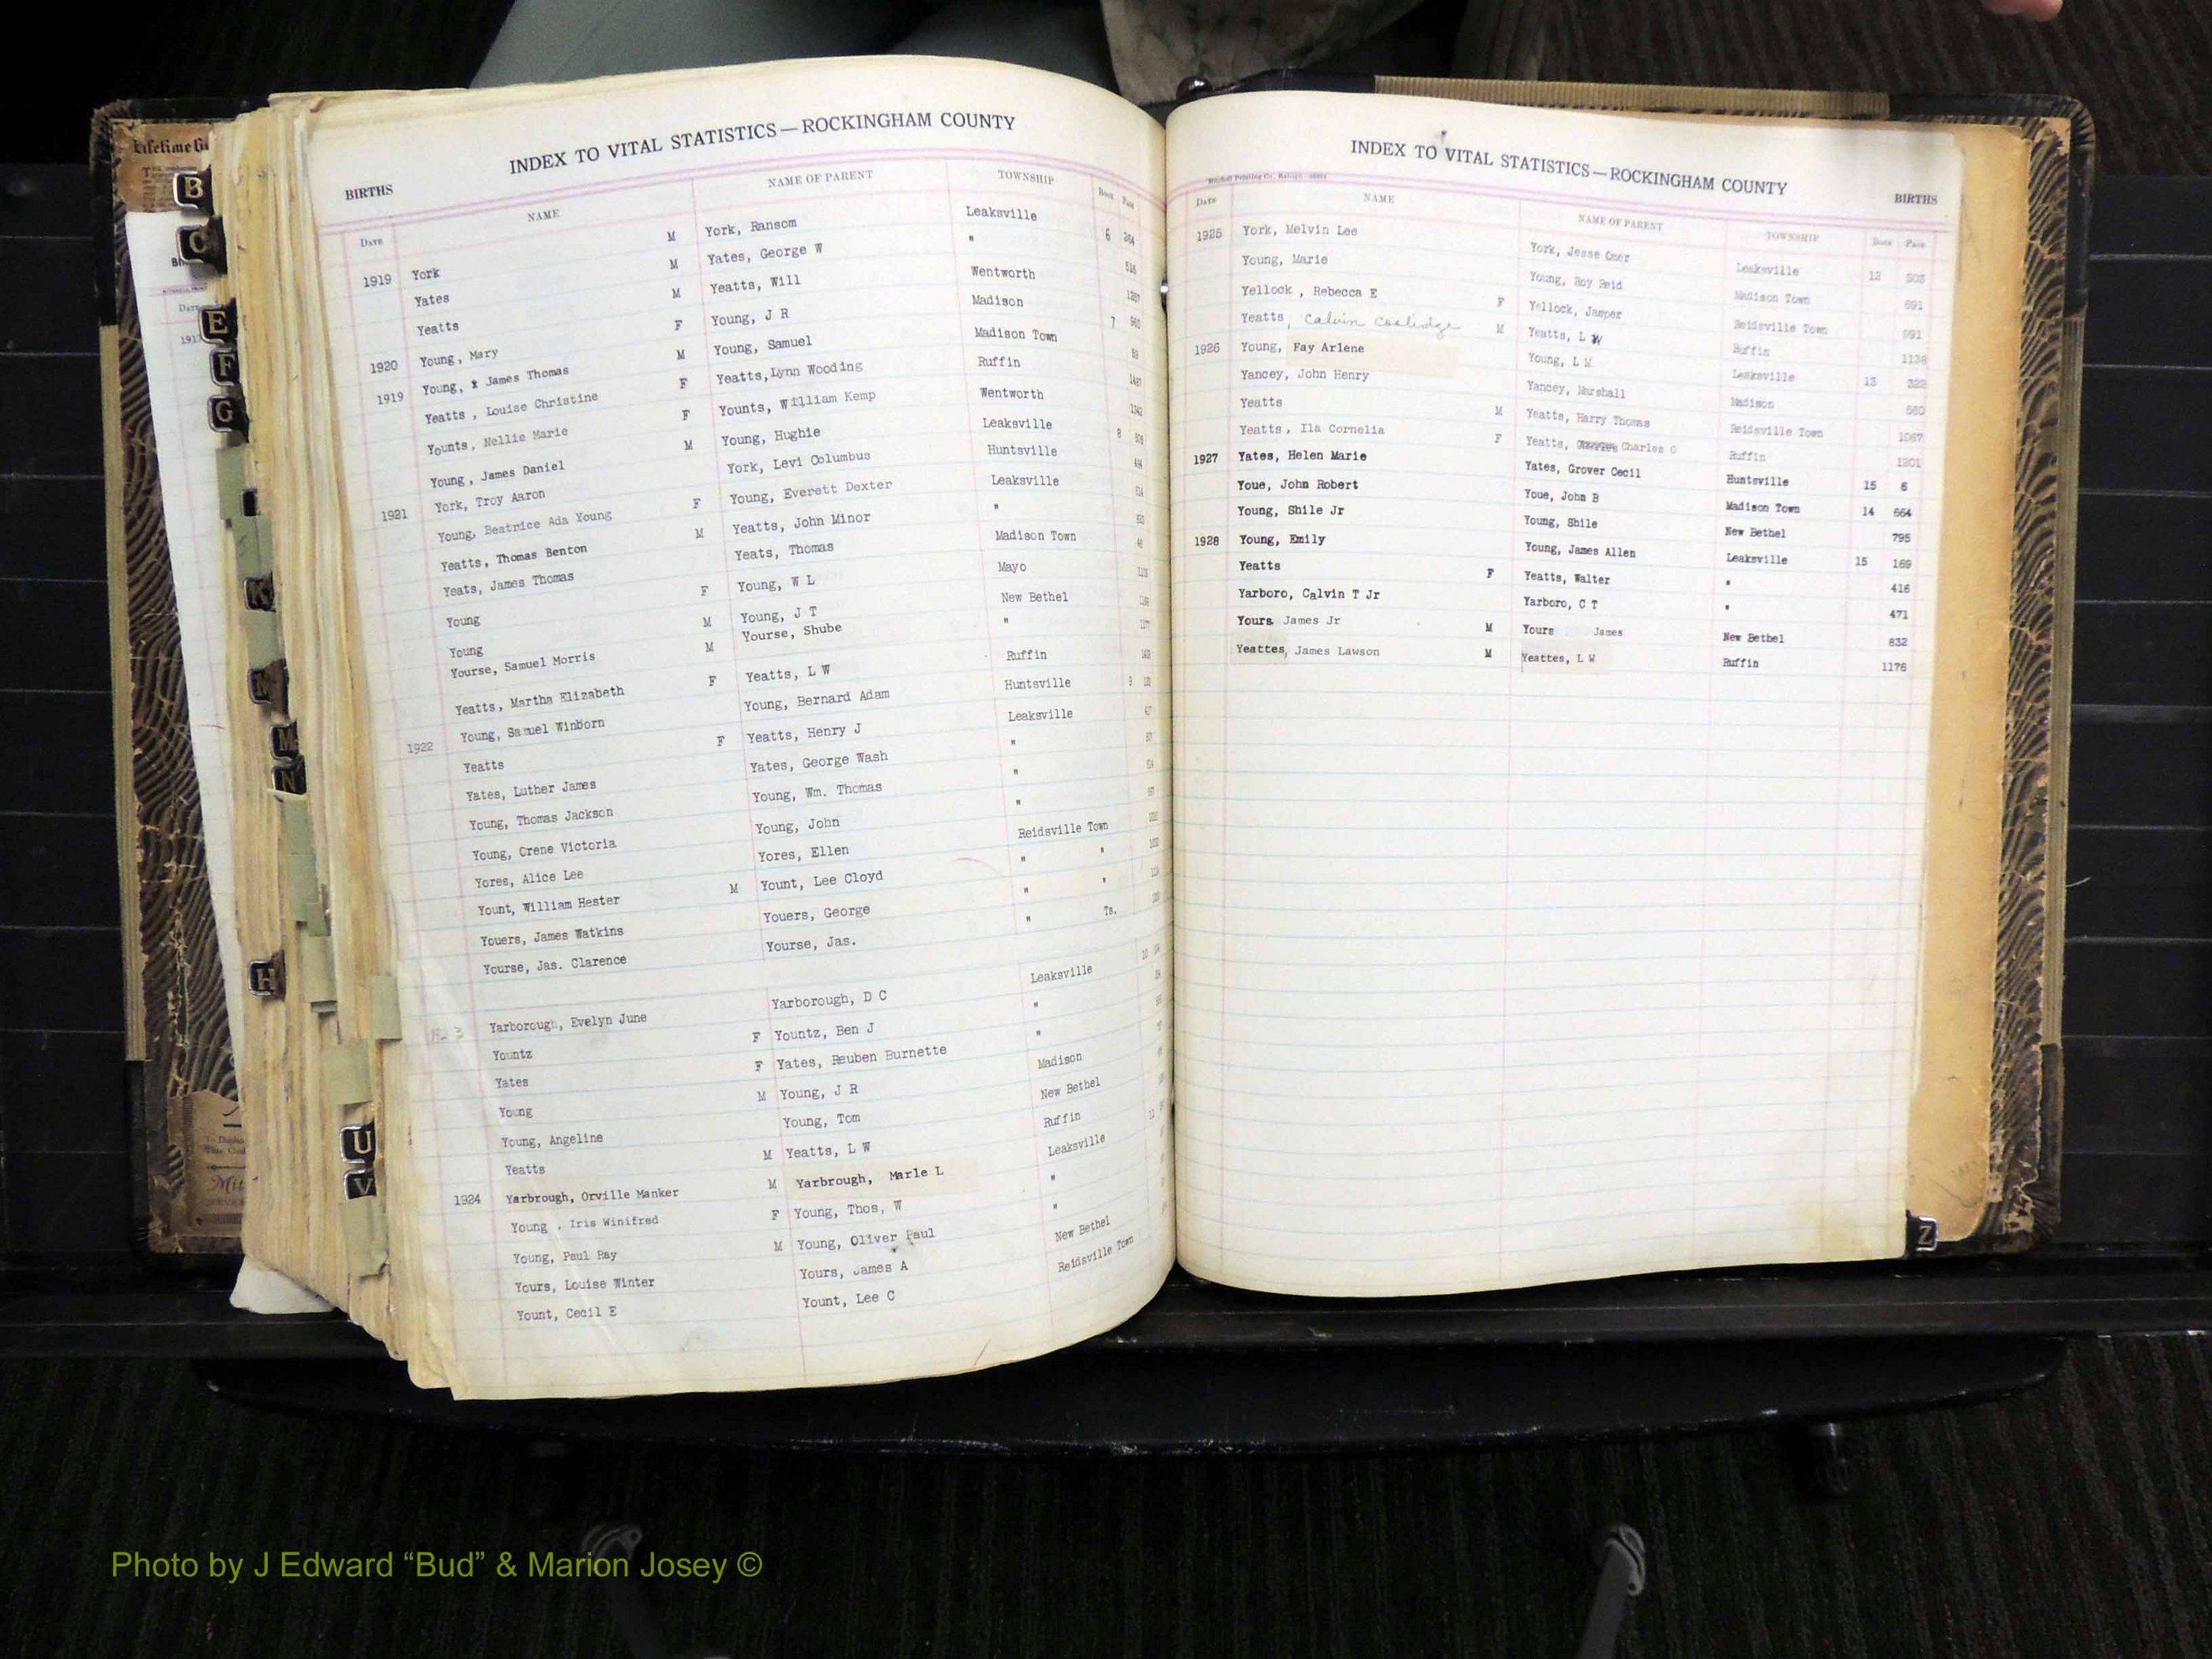 INDEX TO VITAL STATISTICS — ROCKINGHAM COUNTY
BIRTHS
DATE NAME NAME OF PARENT TOWNSHIP BOOK PAGE
1919 York M York, Ransom Leaksville 6 264
Yates M Yates, George W " 516
Yeatts M Yeatts, Will Wentworth
1920 Young, Mary F Young, J R Madison 7
1919 Young, James Thomas M Young, Samuel Madison Town
Yeatts, Louise Christine F Yeatts, Lynn Wooding Ruffin
Younts, Nellie Marie F Younts, William Kemp Wentworth
Young, James Daniel M Young, Hughie Leaksville 8
1921 York, Troy Aaron York, Levi Columbus Huntsville
Young, Beatrice Ada Young F Young, Everett Dexter Leaksville
Yeatts, Thomas Benton M Yeatts, John Minor "
Yeats, James Thomas Yeats, Thomas Madison Town
Young F Young, W L Mayo
Young M Young, J T New Bethel
Yourse, Samuel Morris M Yourse, Shube "
Yeatts, Martha Elizabeth F Yeatts, L W Ruffin
1922 Young, Samuel Winborn Young, Bernard Adam Huntsville 9
Yeatts F Yeatts, Henry J Leaksville
Yates, Luther James Yates, George Wash "
Young, Thomas Jackson Young, Wm. Thomas "
Young, Orene Victoria Young, John "
Yores, Alice Lee Yores, Ellen Reidsville Town
Yount, William Hester M Yount, Lee Cloyd " "
Youers, James Watkins Youers, George " "
Yourse, Jas. Clarence Yourse, Jas. " Ts.
Yarborough, Evelyn June Yarborough, D C Leaksville 10
Yountz F Yountz, Ben J "
Yates F Yates, Reuben Burnette "
Young M Young, J R Madison
Young, Angeline Young, Tom New Bethel
Yeatts M Yeatts, L W Ruffin
1924 Yarbrough, Orville Manker M Yarbrough, Marle L Leaksville
Young, Iris Winifred F Young, Thos, W "
Young, Paul Ray M Young, Oliver Paul "
Yours, Louise Winter Yours, James A New Bethel
Yount, Cecil E Yount, Lee C Reidsville Town
INDEX TO VITAL STATISTICS — ROCKINGHAM COUNTY
BIRTHS
DATE NAME NAME OF PARENT TOWNSHIP BOOK PAGE
1925 York, Melvin Lee York, Jesse Omer Leaksville 12 503
Young, Marie Young, Roy Reid Madison Town 691
Yellock, Rebecca E F Yellock, Jasper Reidsville Town 991
Yeatts, Calvin Coolidge M Yeatts, L W Ruffin 1138
1926 Young, Fay Arlene Young, L M Leaksville 13 322
Yancey, John Henry Yancey, Marshall Madison 560
Yeatts M Yeatts, Harry Thomas Reidsville Town 1067
Yeatts, Ila Cornelia F Yeatts, Charles O Ruffin 1201
1927 Yates, Helen Marie Yates, Grover Cecil Huntsville 15 6
Youe, John Robert Youe, John B Madison Town 14 664
Young, Shile Jr Young, Shile New Bethel 795
1928 Young, Emily Young, James Allen Leaksville 15 169
Yeatts F Yeatts, Walter " 416
Yarboro, Calvin T Jr Yarboro, C T " 471
Yours James Jr M Yours James New Bethel 832
Yeattes, James Lawson M Yeattes, L W Ruffin 1176
B
C
E
F
G
K
M
N
H
U
V
Z
Photo by J Edward “Bud” & Marion Josey ©